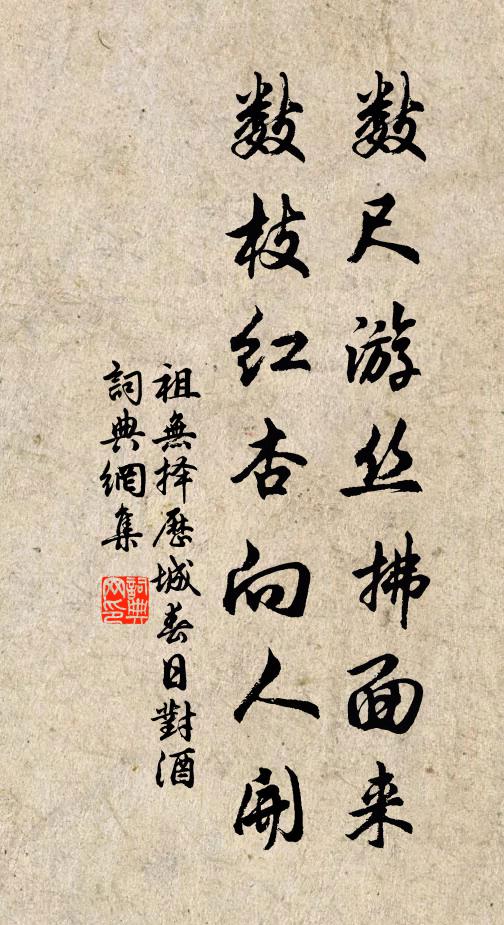 数尺游丝拂面来
数枝红杏向人开
祖無择歷城春日對酒
詞典網集
詞典网印